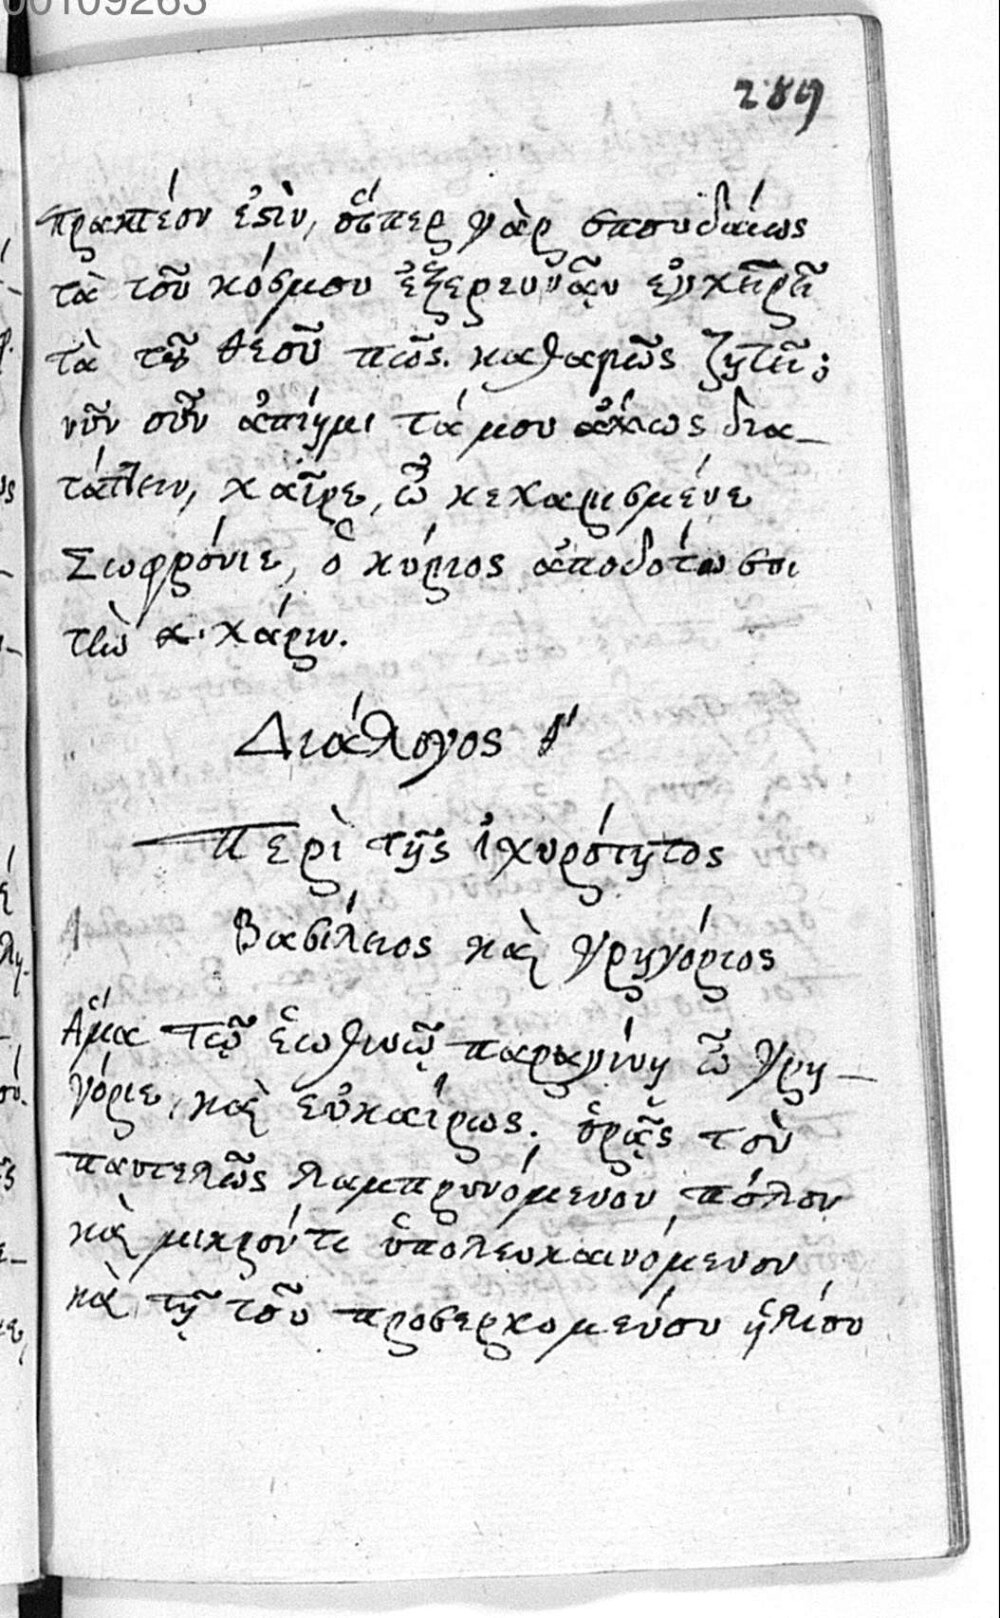 00109263
289
πρακτέον ἐστὶν, ὅσπερ γὰρ σπουδαίως
τὰ τοῦ κόσμου ἐξερευνᾷν ἐγχειρεῖ
τὰ τοῦ θεοῦ πῶς καθαρῶς ζητεῖ;
νῦν οὖν ἀπίημι τά μου ἀξίως δια_
τάττειν, χαῖρε, ὦ κεχαρισμένε
Σωφρόνιε, ὁ κύριος ἀποδότω σοι
τὴν χάριν.
Διάλογος
Περὶ τῆς ἰχυρότητος
Βασίλειος καὶ γρηγόριος
Ἅμα τῷ ἑωθινῷ παραγίνῃ ὦ γρη_
γόριε, καὶ εὐκαίρως; ὁρᾷς τὸν
παντελῶς λαμπρυνόμενον πόλον
καὶ μικρόν τι ὑπολευκαινόμενον
καὶ τῇ τοῦ προσερχομένου ἡλίου